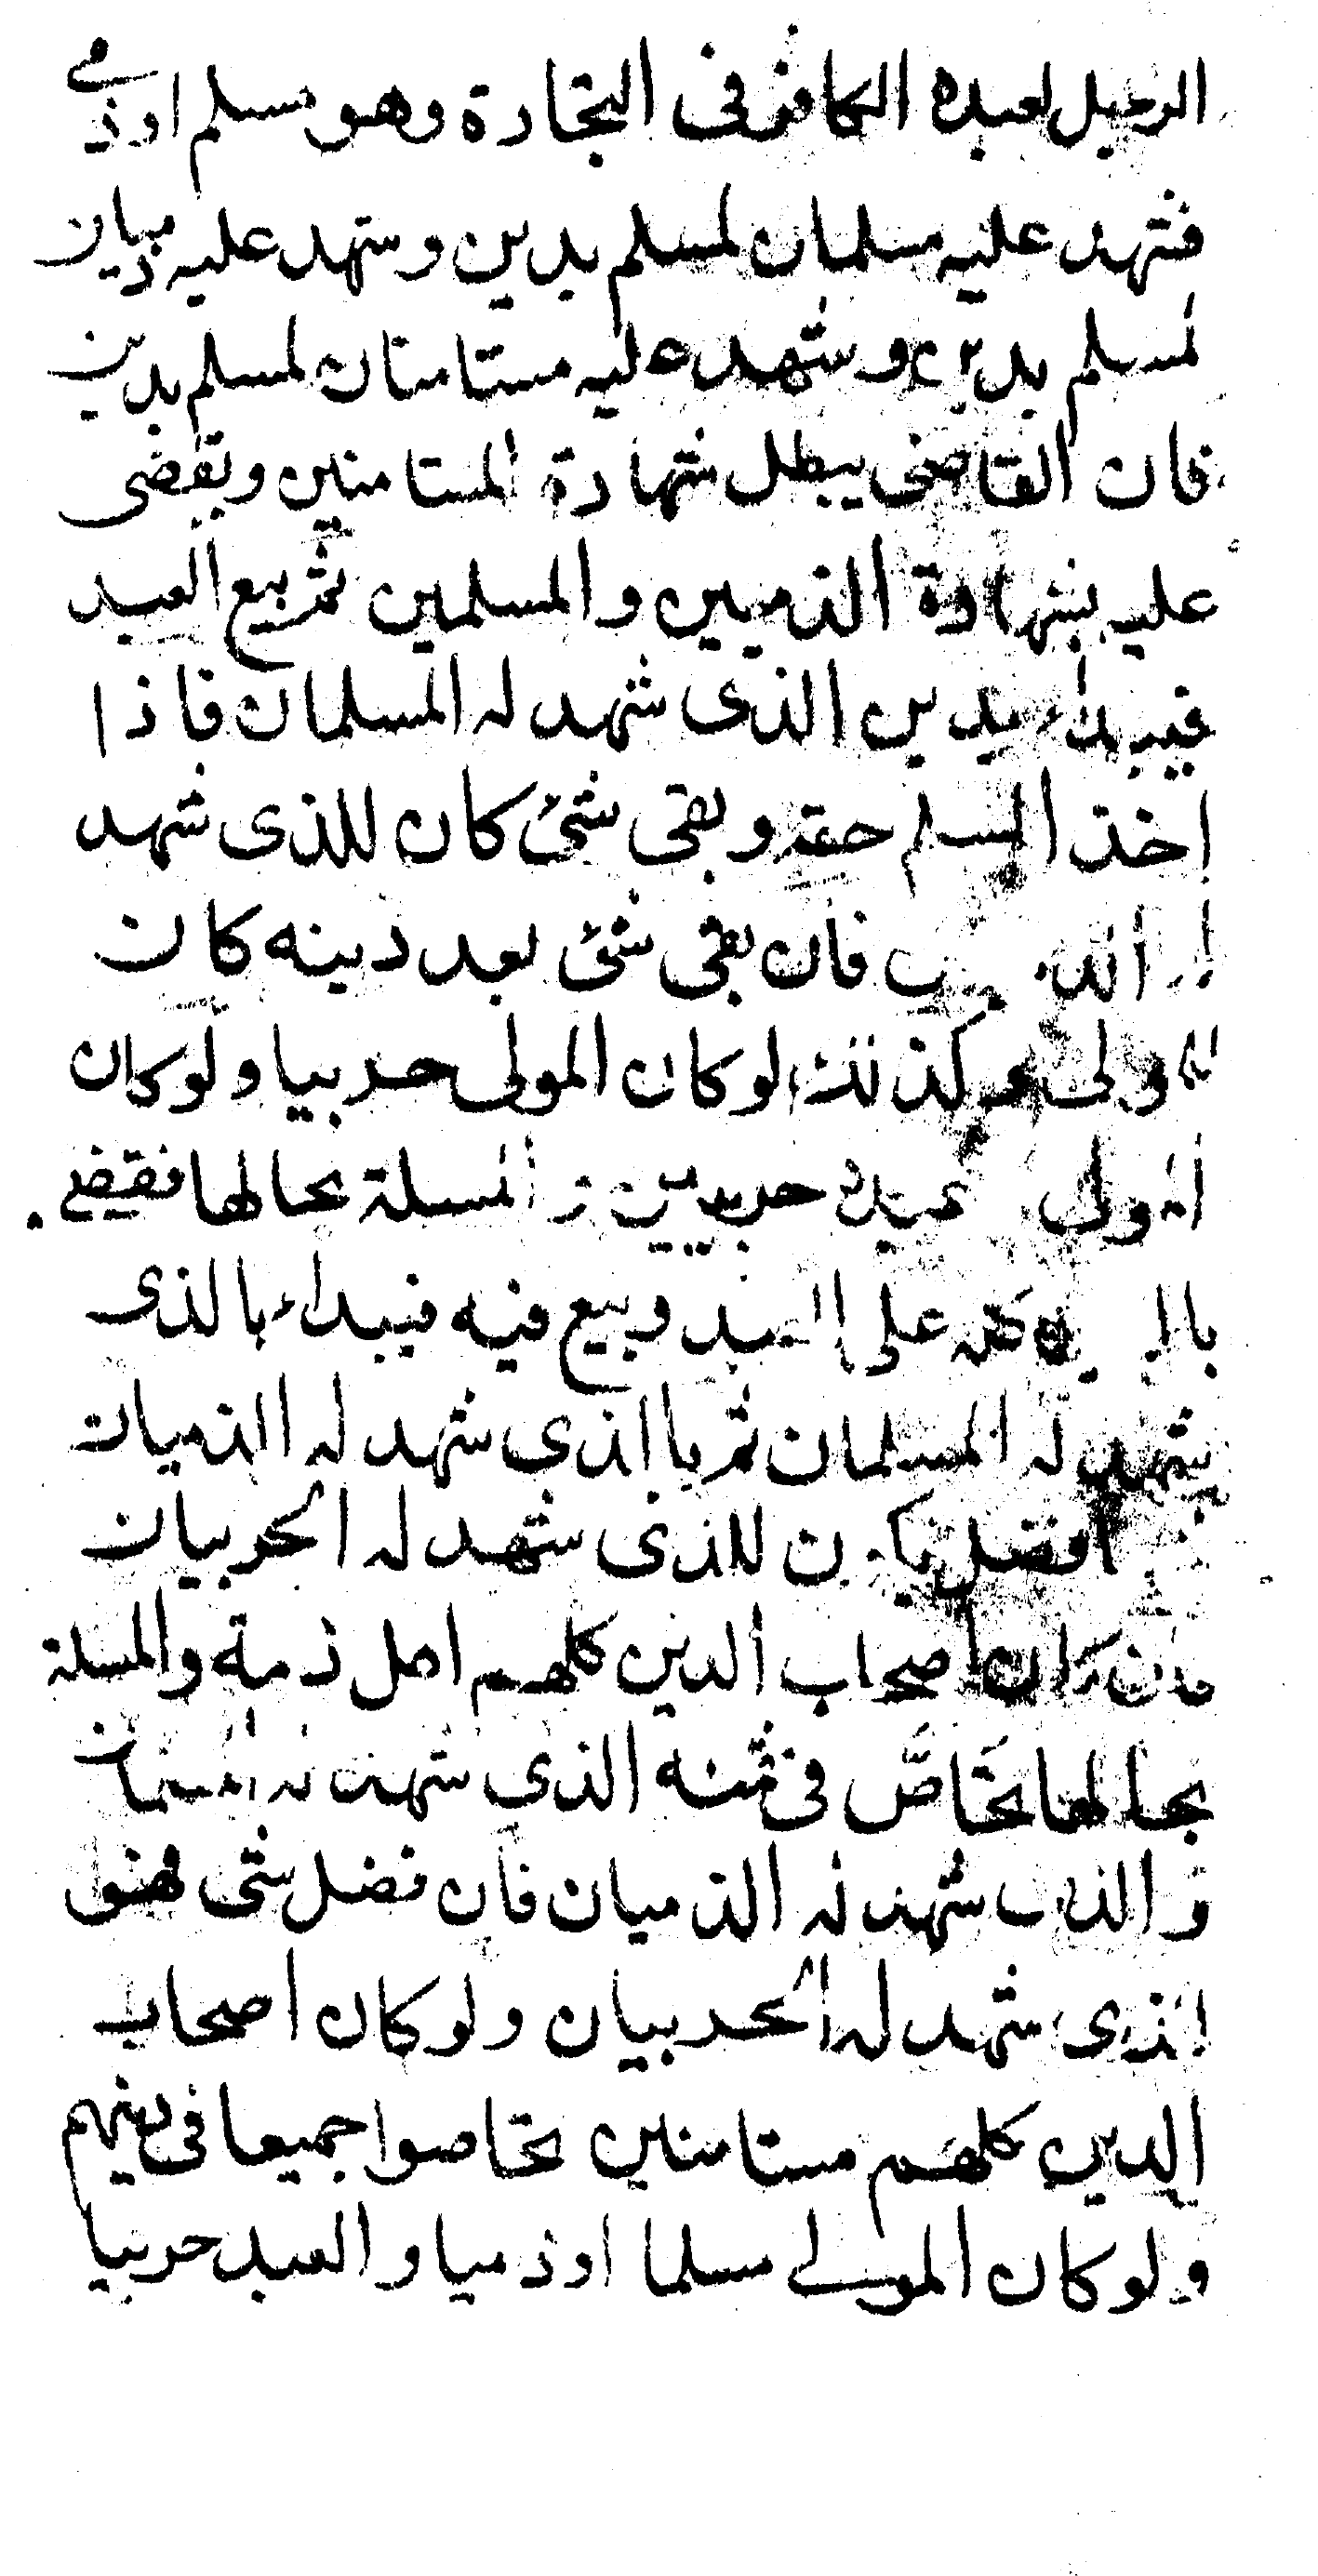 الرجل لعبده الكافر فى التجارة وهو مسلم اوذمي
فشهد عليه مسلمان لمسلم بدين وشهد عليه ذميان
لمسلم بدين وشهد عليه مستامنان لمسلم بدين
فان القاضى يبطل شهادة المستامنين ويقضى
عليه بشهادة الذميين والمسلمين ثم يبيع العبد
فيبداء بدين الذى شهد له المسلمان فاذا
اخذ المسلم حقه وبقى شئ كان للذى شهد
له فان بقى شئ بعد دينه كان
للمولى وكذلك لو كان المولى حربيا ولو كان
المولى حربيين والمسلة بحالها فقضى
على العبد وبيع فيه فيبداء بالذى
شهد له المسلمان ثم بالذى شهد له الذميان
للذى شهد له الحربيان
فان كان اصحاب الدين كلهم اهل ذمة والمسلة
بحالها تحاصّ فى ثمنه الذى شهد له المسلمان
والذى شهد له الذميان فان فضل شى فهو
للذى شهد له الحربيان ولو كان اصحاب
الدين كلهم مستامنين تحاصوا جميعا فى دينهم
ولو كان المولى مسلما اوذميا والعبد حربيا